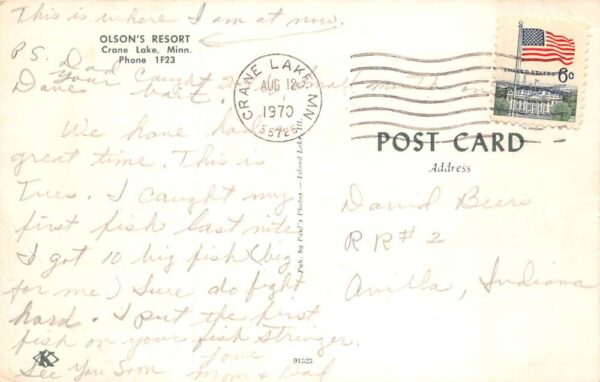 This is where I am at now.
OLSON'S RESORT
Crane Lake, Minn.
Phone 1F23
P.S. Dad caught 2 small mouth on
Your
Daves bait.
We have had
great time. This is
Tues. I caught my
first fish last nite
I got 10 big fish (big
for me) Sure do fight
hard. I put the first
fish on your fish stringer.
See You Soon Love
Mom & Dad
K
Pub. by Paul's Photos — Island Lake, Ill.
91525
CRANE LAKE, MN
AUG 12
1970
55725
UNITED STATES 6c
POST CARD
Address
David Beers
RR# 2
Indiana